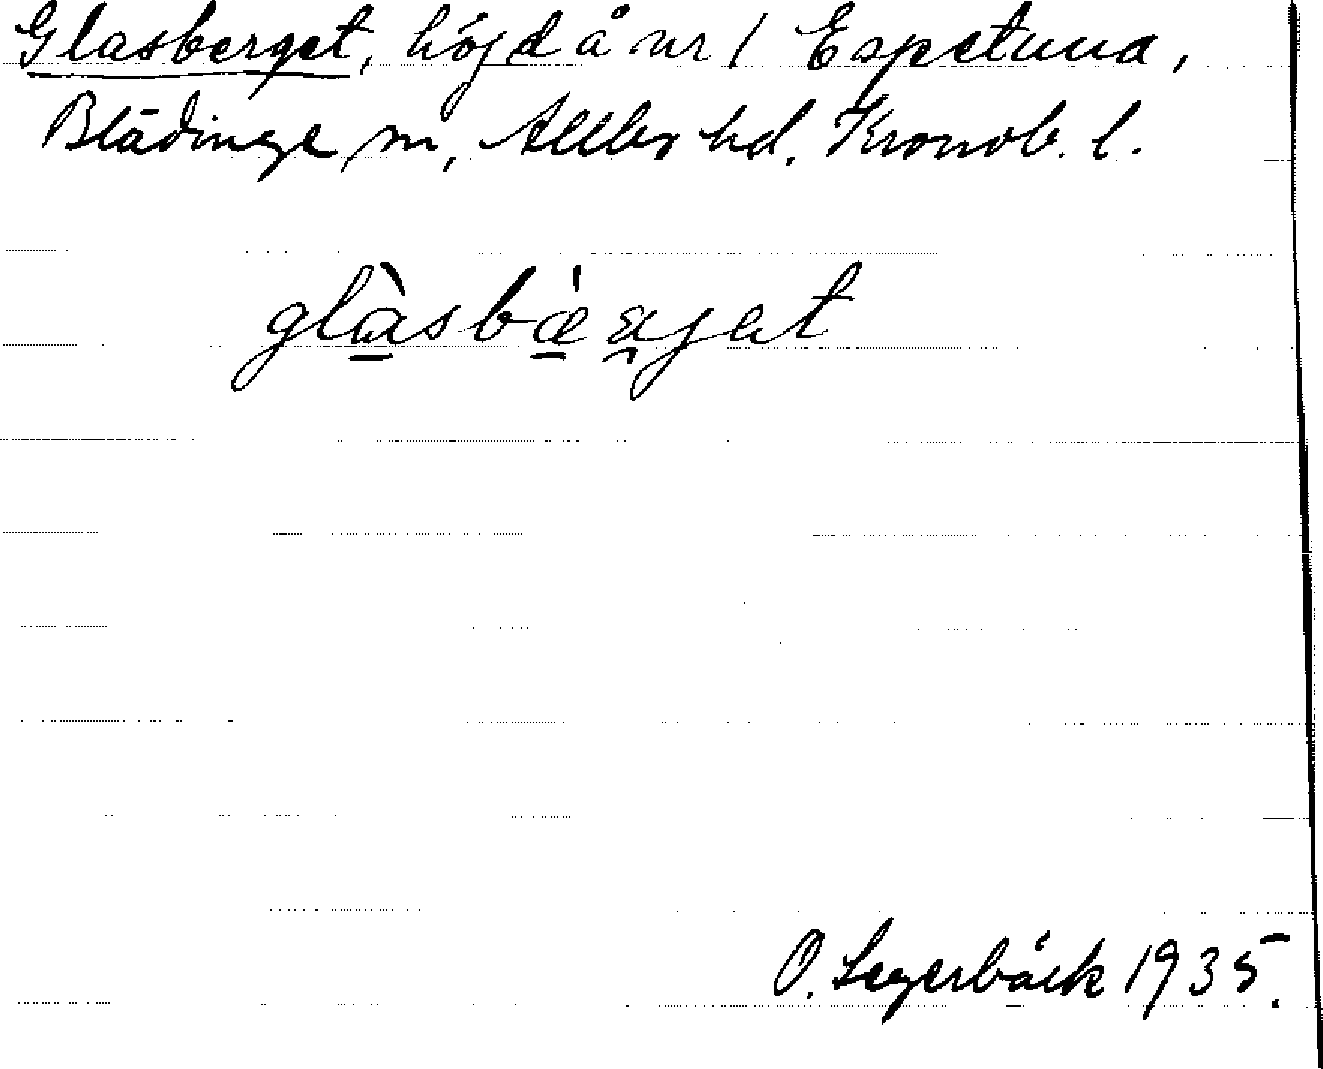 Glasberget, höjd å nr 1 Espetuna,
Blädinge sn, Allbo hd. Kronob. l.
glàsbæ̀ʀjat
O. Segerbäck 1935.